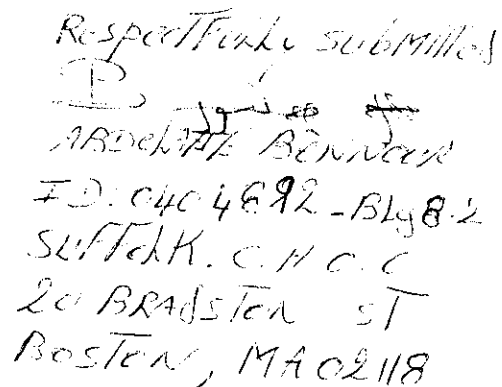 RespectFully submitted
ABDELHAFE BENNOUR
ID: 0404892-Bldg 8.2
SUFFOLK. C. H O. C
20 BRADSTON ST
BOSTON, MA 02118